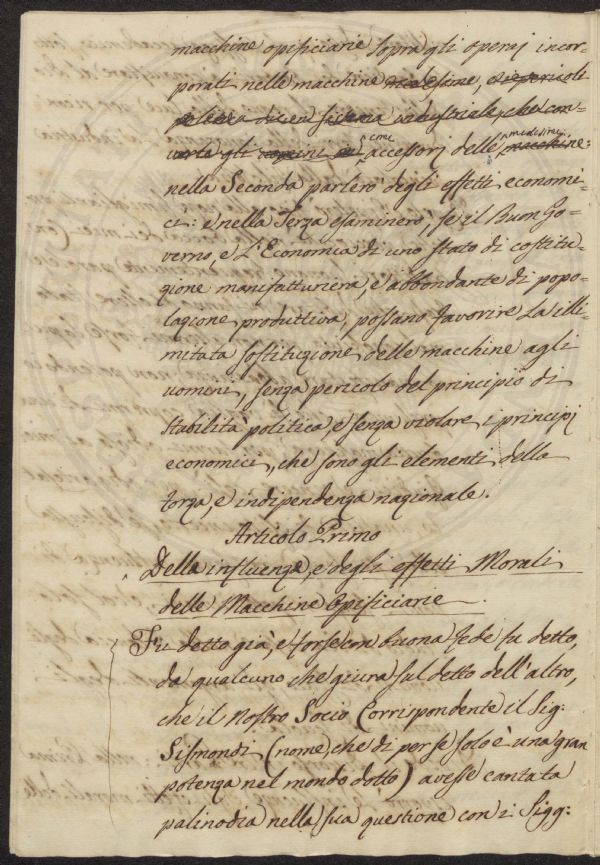 macchine opificiarie sopra gli operaj incor=
porati nelle macchine medesime, e i pericoli
politica di un sistema industriale, che con=
verte gli uomini in come accessorj delle medesime macchine:
nella Seconda parlerò degli effetti economi=
ci: e nella Terza esaminerò, se il Buon Go=
verno, e L'Economia di uno stato di costitu=
zione manifatturiera, e abbondante di popo=
lazione produttiva, possano favorire La illi=
mitata sostituzione delle macchine agli
uomini, senza pericolo del principio di
stabilità politica, e senza violare i principj
economici, che sono gli elementi della
forza, e indipendenza nazionale.
Articolo Primo
Della influenza, e degli effetti Morali
delle Macchine Opificiarie.
Fu detto già, e forse con buona fede fu detto,
da qualcuno che giura sul detto dell'altro,
che il Nostro Socio Corrispondente il Sig:
Sismondi (nome, che di per se solo è una gran
potenza nel mondo dotto) avesse cantata
palinodia nella sua questione con i Sigg: